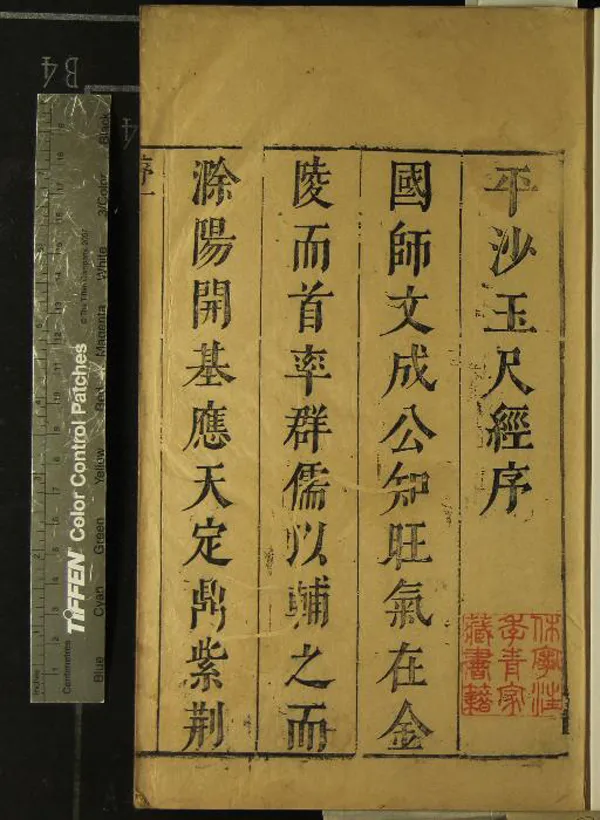 平沙玉尺經序
國師文成公知旺氣在金
陵而首率群儒以輔之而
滁陽開基應天定鼎紫荆
序一
休寧汪
季青家
藏書籍
B4
4
TIFFEN Color Control Patches
© The Tiffen Company, 2007
Inches
Centimetres
Blue
Cyan
Green
Yellow
Red
Magenta
White
3/Color
Black